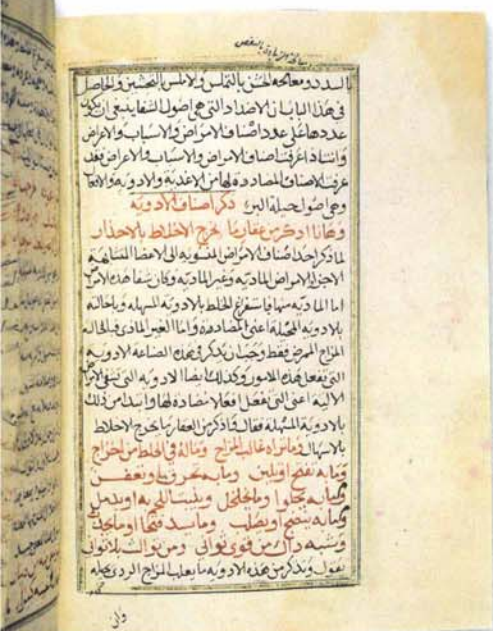 ومعالجة الزيادة بالنقص
بالسدد ومعالجة الخشن بالتماس والاملس بالتخشين والحاصل
في هذا الباب ان الاضداد التي هي اصول الشفا ينبغي ان يكون
عددها على عدد اصناف الامراض والاسباب والاعراض
وانت اذا عرفت اصناف الامراض والاسباب والاعراض فقد
عرفت الاصناف المضاددة لها من الاغذية والادوية والافعال
وهي اصول حيلة البرء ذكر اصناف الادوية
وهانا اذكر من عقار ما يخرج الاخلاط بالاحدار
لما ذكر احد اصناف الامراض المنسوبة الى الاعضا المتشابهة
الاجزا الامراض المادية وغير المادية وكان شفا هذه الامراض
اما المادية منها فباستفراغ الخلط بالادوية المسهلة وباحالته
بالادوية المحيلة اعني المضاددة واما الغير المادي فباحالة
المزاج الممرض فقط وجب ان يذكر في هذه الصناعة الادوية
التي تفعل هذه الامور وكذلك ايضا الادوية التي تشفي الامراض
الالية اعني التي تفعل افعالا مضادة لها وابتدا من ذلك
بالادوية المسهلة فقال واذكر من العقار ما يخرج الاخلاط
بالاسهال وما تراه غالب المزاج وماله في الخلط من اخراج
وما به تفتح او تلين وما به تحرق او تعفن
وما به تجلوا وما تخلخل وينبت اللحم به او يدمل
وما به ينضج او يصلب وما يسد فتحا او ما يجذب
وشبه ذاك من قوى ثواني ومن ثوالث بلا تواني
يقول ونذكر من هذه الادوية ما يغلب المزاج الردي بحيله
واني